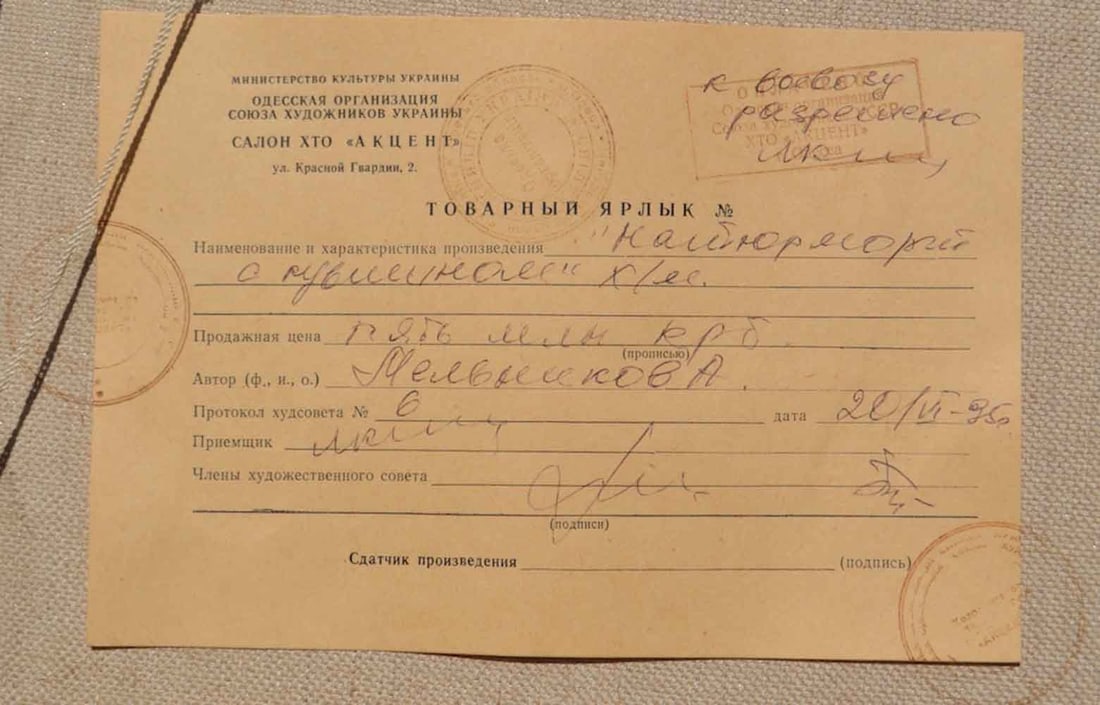 МИНИСТЕРСТВО КУЛЬТУРЫ УКРАИНЫ
ОДЕССКАЯ ОРГАНИЗАЦИЯ
СОЮЗА ХУДОЖНИКОВ УКРАИНЫ
САЛОН ХТО «АКЦЕНТ»
ул. Красной Гвардии, 2.
к вывозу
разрешено
ХТО «АКЦЕНТ»
ТОВАРНЫЙ ЯРЛЫК №
Наименование и характеристика произведения "Натюрморт
с кувшином" х/м.
Продажная цена пять млн крб.
(прописью)
Автор (ф., и., о.) Мельников А.
Протокол худсовета № 6 дата 20/VI-95г.
Приемщик
Члены художественного совета
(подписи)
Сдатчик произведения (подпись)